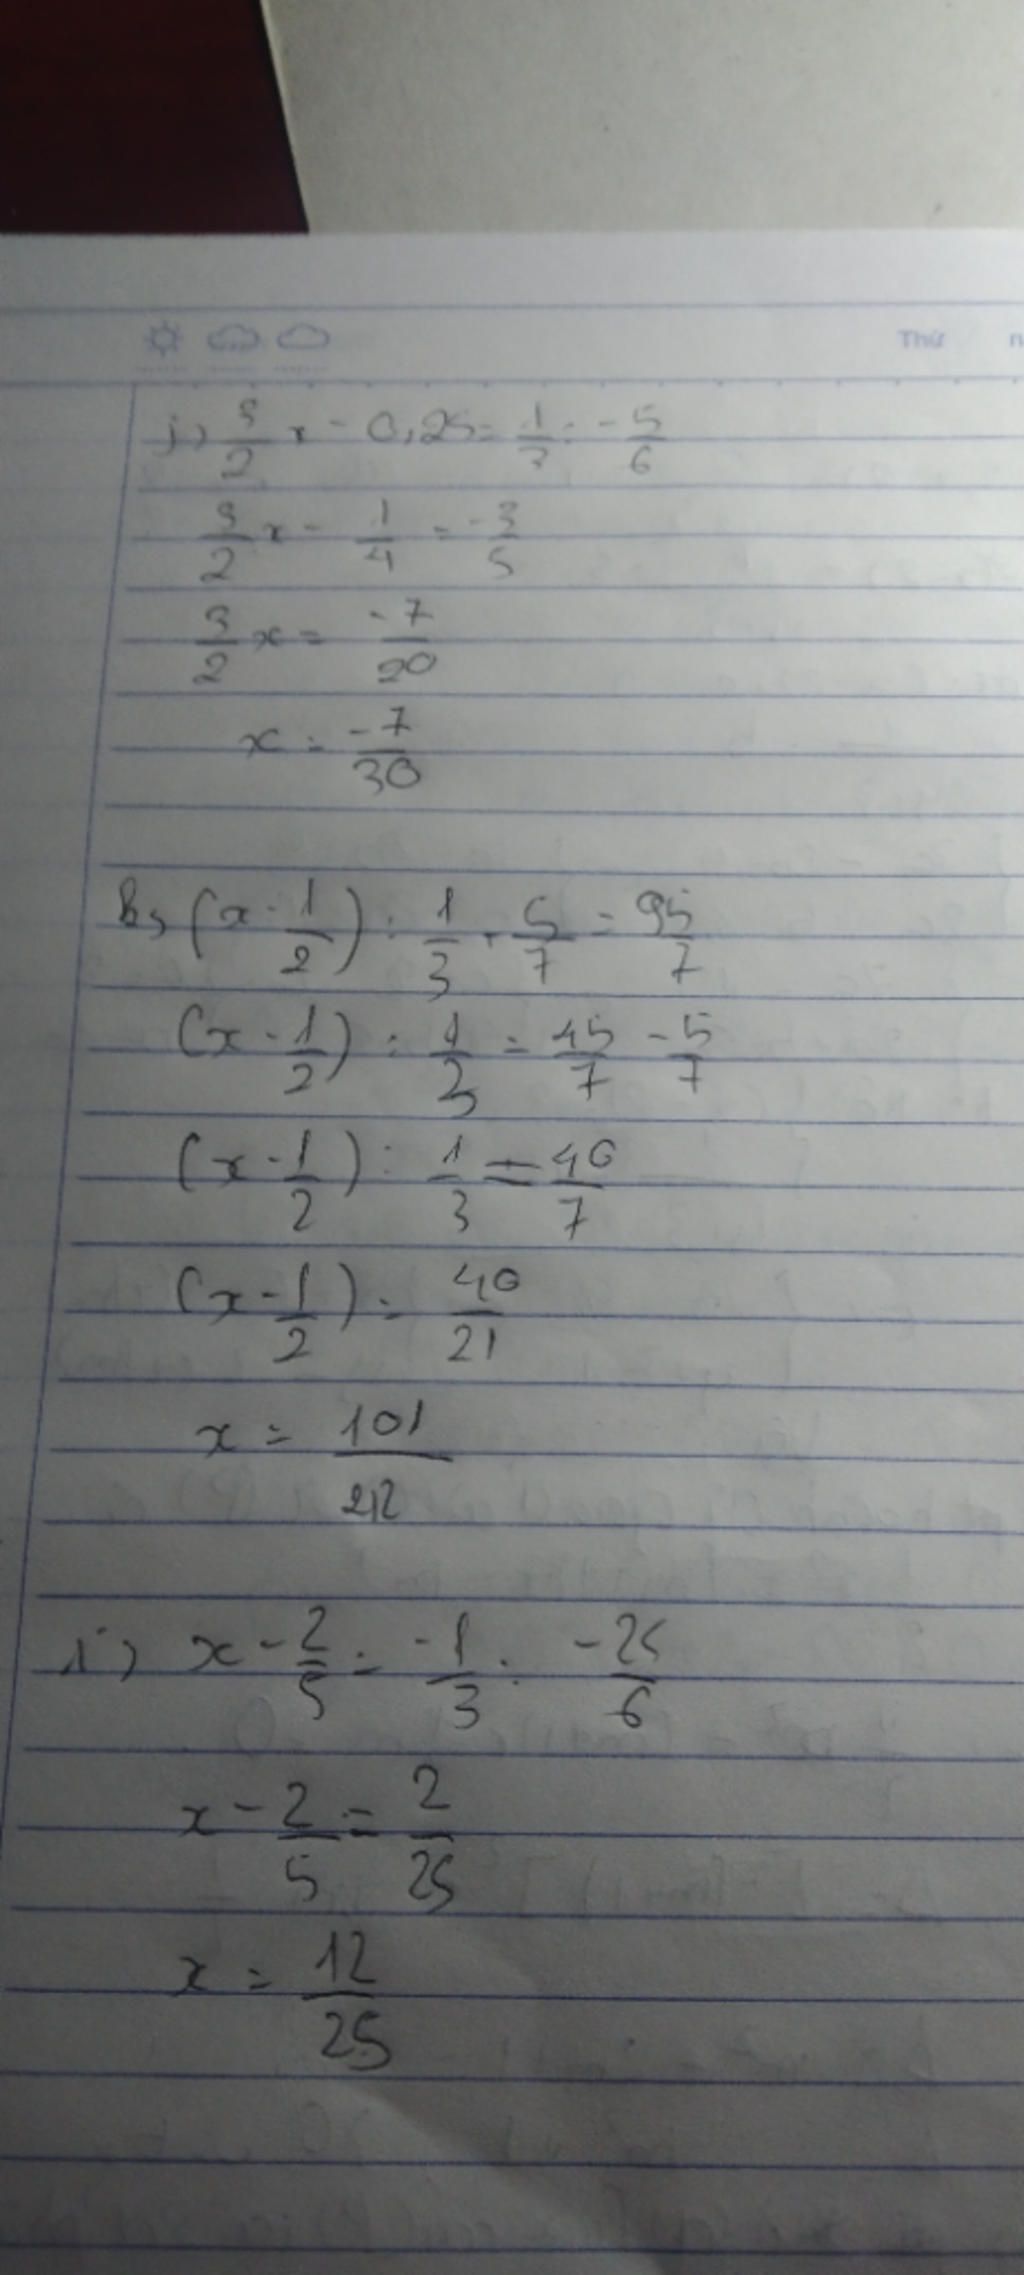 Thứ
j) 3/2 x - 0,25 = 1/3 : -5/6
3/2 x - 1/4 = -3/5
3/2 x = -7/20
x = -7/30
b, (x - 1/2) : 1/3 + 5/7 = 95/7
(x - 1/2) : 1/3 = 45/7 - 5/7
(x - 1/2) : 1/3 = 40/7
(x - 1/2) = 40/21
x = 101/42
i) x - 2/5 = -1/3 : -25/6
x - 2/5 = 2/25
x = 12/25